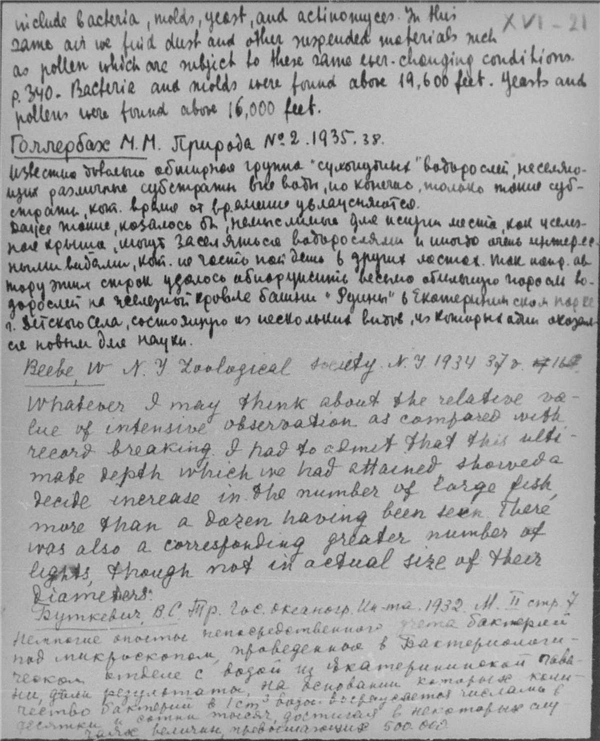 include bacteria, molds, yeast, and actinomyces. In this
XVI - 21
same air we find dust and other suspended materials such
as pollen which are subject to these same ever-changing conditions.
p. 340. Bacteria and molds were found above 19,600 feet. Yeasts and
pollens were found above 16,000 feet.
Голлербах М.М. Природа №2. 1935. 38.
Известна довольно обширная группа "сухопутных" водорослей, населяю-
щих различные субстраты вне воды, но конечно, только такие суб-
страты, кот. время от времени увлажняются.
Даже такие, казалось бы, немыслимые для жизни места, как желез-
ная крыша, могут заселяться водорослями и иногда очень интерес-
ными видами, кот. не часто найдешь в других местах. Так напр. ав-
тору этих строк удалось обнаружить весьма обильную поросль во-
дорослей на железной кровле башни "Руины" в Екатерининском парке
г. Детского Села, состоящую из нескольких видов, из которых один оказал-
ся новым для науки.
Beebe, W N. Y Zoological society. N. Y 1934 37 v.
Whatever I may think about the relative va-
lue of intensive observation as compared with
record breaking. I had to admit that this ulti-
mate depth which we had attained showed a
decide increase in the number of large fish,
more than a dozen having been seen. There
was also a corresponding greater number of
lights, though not in actual size of their
diameters.
Буткевич, В.С. Тр. Гос. океаногр. Ин-та. 1932. М. II стр. 7
Немногие опыты непосредственного учета бактерий
под микроскопом, проведенные в Бактериологи-
ческом отделе с водой из Екатерининской гава-
ни, дали результаты, на основании которых коли-
чество бактерий в 1 cm³ воды выражается числами в
десятки и сотни тысяч, достигая в некоторых слу-
чаях величин, превышающих 500.000.